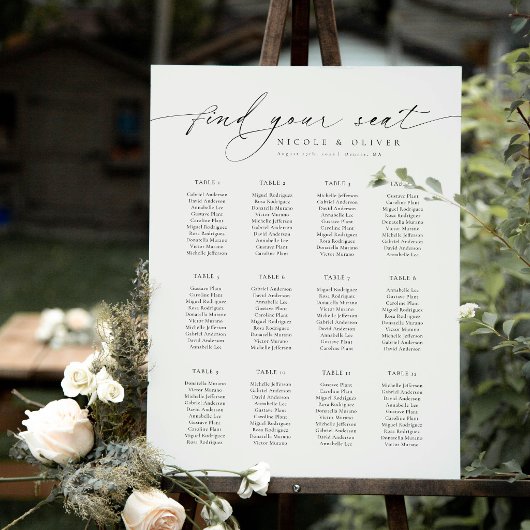 find your seat
NICOLE & OLIVER
August Denver, MA
TABLE 1
Gabriel Anderson
David Anderson
Annabelle Lee
Gustave Plant
Caroline Plant
Miguel Rodriguez
Rosa Rodriguez
Donatella Murano
Victor Murano
Michelle Jefferson
TABLE 2
Miguel Rodriguez
Rosa Rodriguez
Donatella Murano
Victor Murano
Michelle Jefferson
Gabriel Anderson
David Anderson
Annabelle Lee
Gustave Plant
Caroline Plant
TABLE 3
Michelle Jefferson
Gabriel Anderson
David Anderson
Annabelle Lee
Gustave Plant
Caroline Plant
Miguel Rodriguez
Rosa Rodriguez
Donatella Murano
Victor Murano
TAB
Gustave Plant
Caroline Plant
Miguel Rodriguez
Rosa Rodriguez
Donatella Murano
Victor Murano
Michelle Jefferson
Gabriel Anderson
David Anderson
Annabelle Lee
TABLE 5
Gustave Plant
Caroline Plant
Miguel Rodriguez
Rosa Rodriguez
Donatella Murano
Victor Murano
Michelle Jefferson
Gabriel Anderson
David Anderson
Annabelle Lee
TABLE 6
Gabriel Anderson
David Anderson
Annabelle Lee
Gustave Plant
Caroline Plant
Miguel Rodriguez
Rosa Rodriguez
Donatella Murano
Victor Murano
Michelle Jefferson
TABLE 7
Miguel Rodriguez
Rosa Rodriguez
Donatella Murano
Victor Murano
Michelle Jefferson
Gabriel Anderson
David Anderson
Annabelle Lee
Gustave Plant
Caroline Plant
TABLE 8
Annabelle Lee
Gustave Plant
Caroline Plant
Miguel Rodriguez
Rosa Rodriguez
Donatella Murano
Victor Murano
Michelle Jefferson
Gabriel Anderson
David Anderson
TABLE 9
Donatella Murano
Victor Murano
Michelle Jefferson
Gabriel Anderson
David Anderson
Annabelle Lee
Gustave Plant
Caroline Plant
Miguel Rodriguez
Rosa Rodriguez
TABLE 10
Michelle Jefferson
Gabriel Anderson
David Anderson
Annabelle Lee
Gustave Plant
Caroline Plant
Miguel Rodriguez
Rosa Rodriguez
Donatella Murano
Victor Murano
TABLE 11
Gustave Plant
Caroline Plant
Miguel Rodriguez
Rosa Rodriguez
Donatella Murano
Victor Murano
Michelle Jefferson
Gabriel Anderson
David Anderson
Annabelle Lee
TABLE 12
Michelle Jefferson
Gabriel Anderson
David Anderson
Annabelle Lee
Gustave Plant
Caroline Plant
Miguel Rodriguez
Rosa Rodriguez
Donatella Murano
Victor Murano